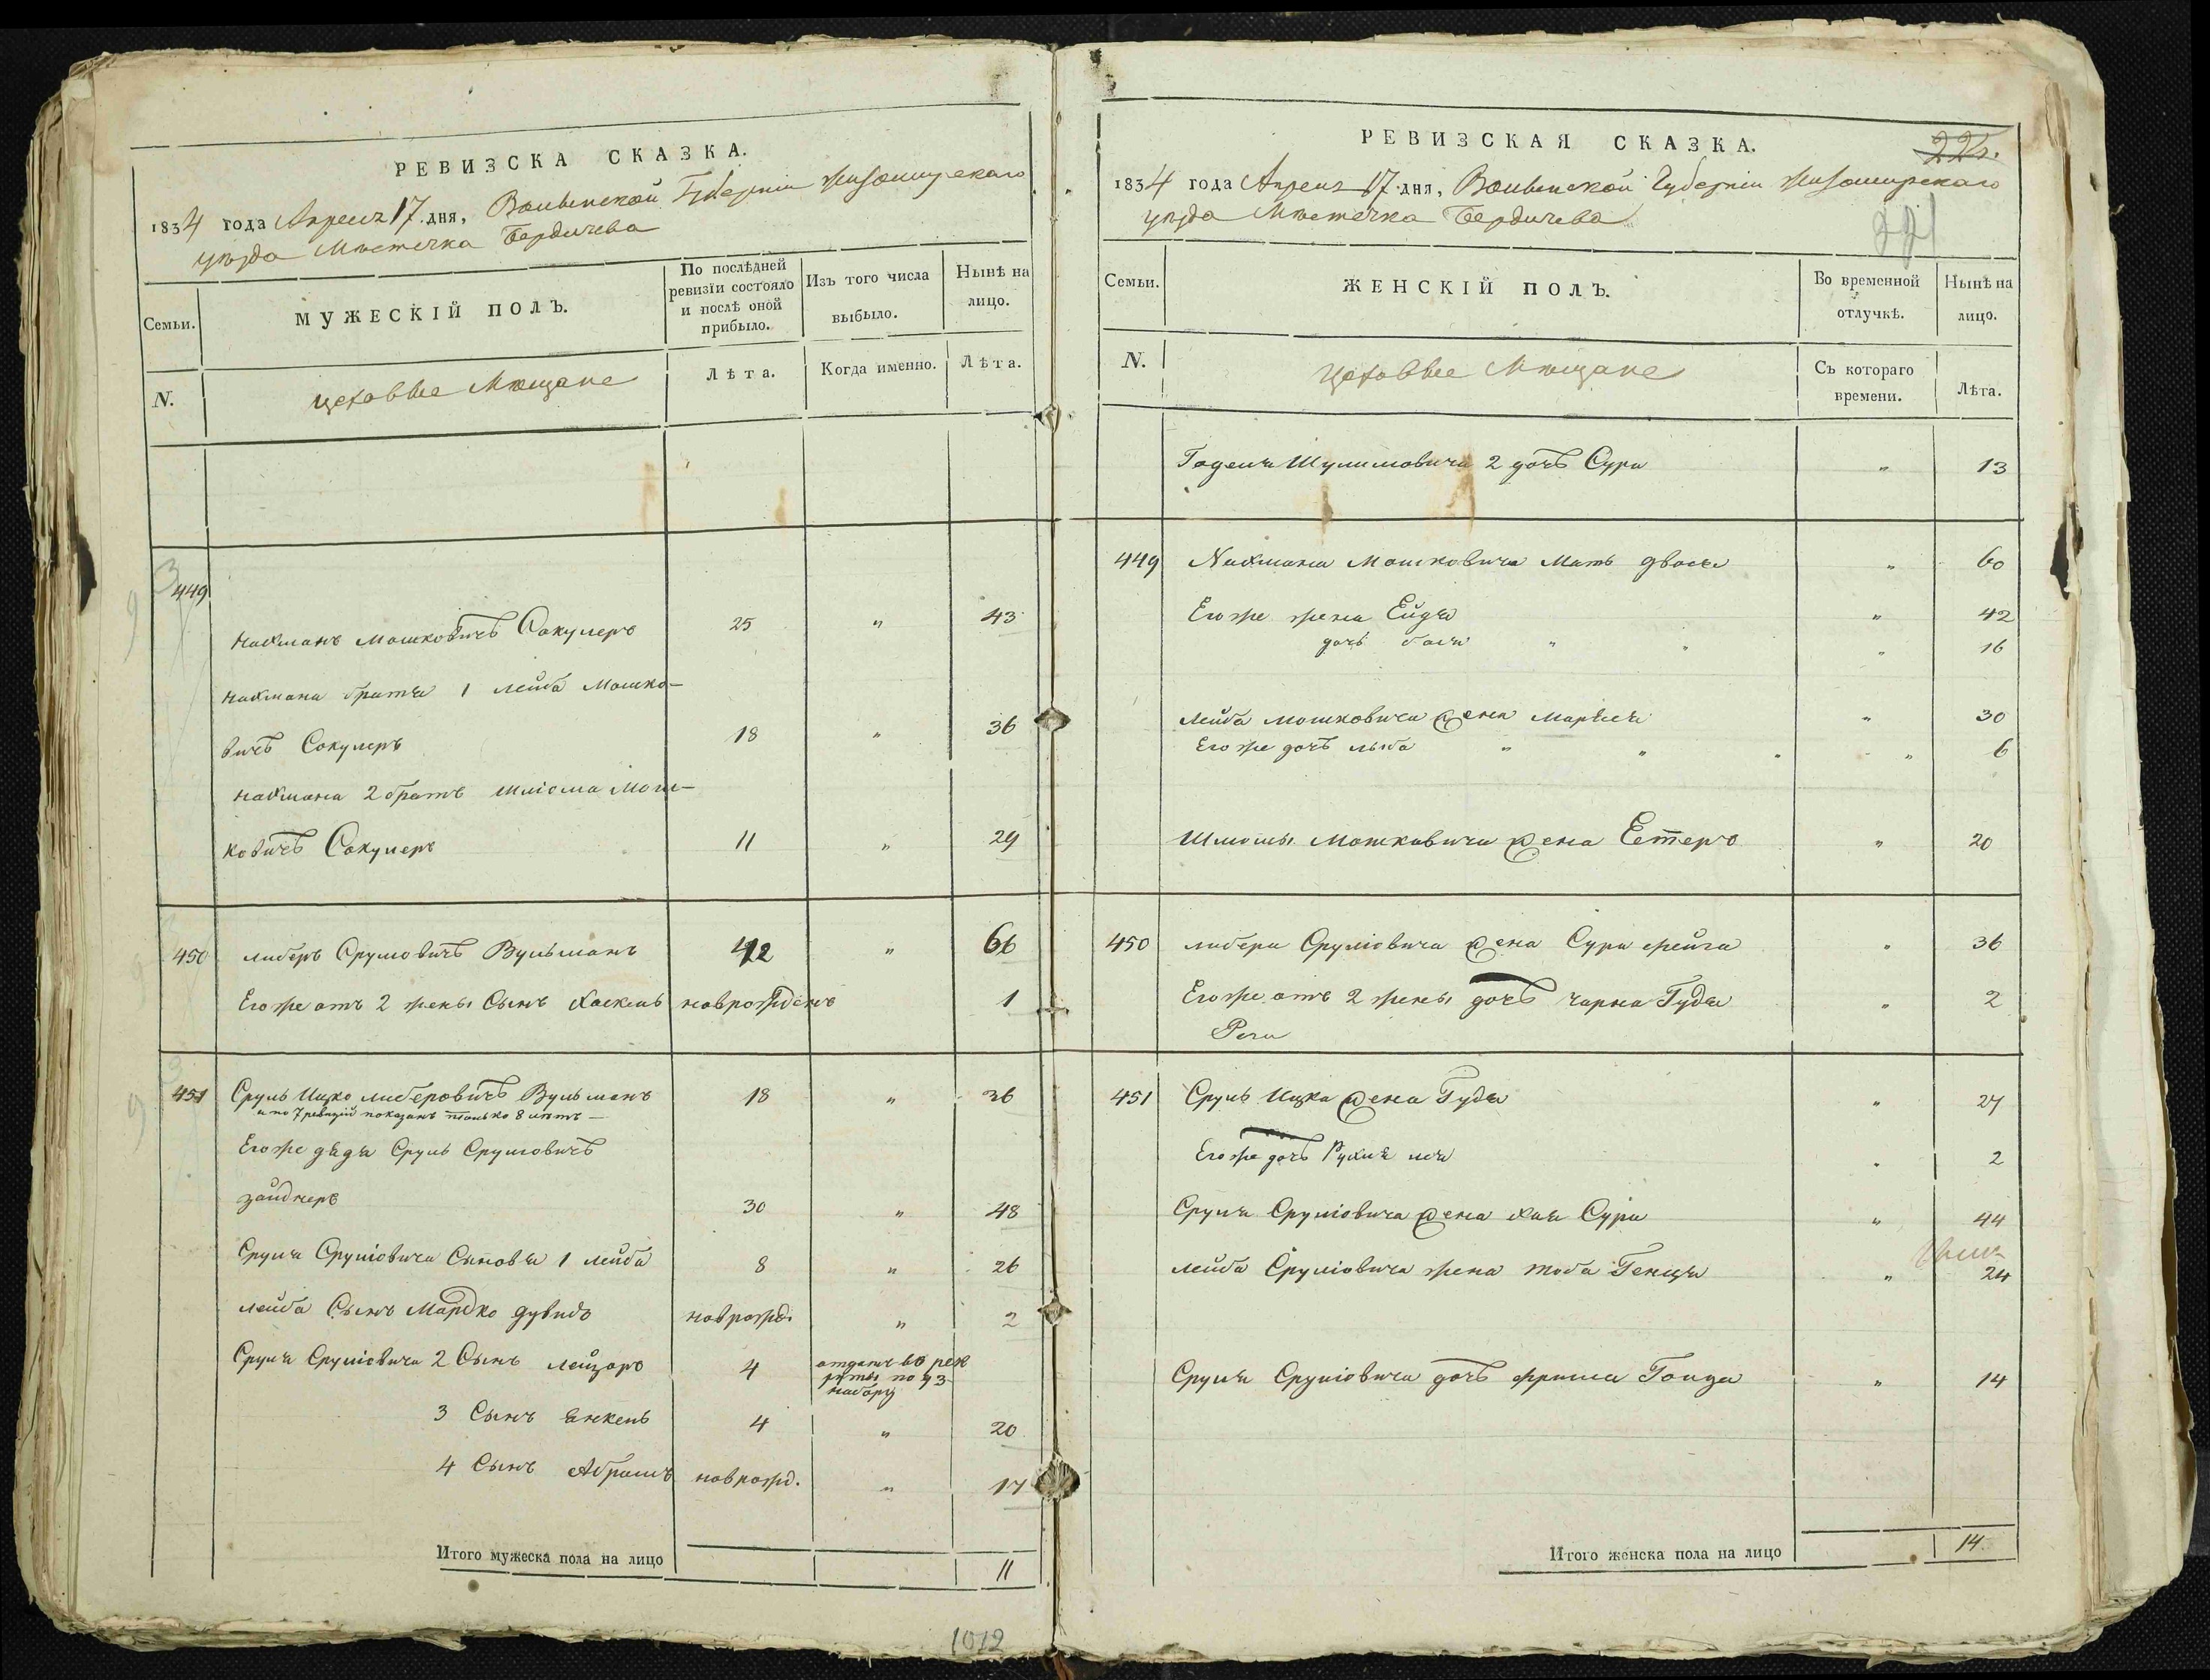 РЕВИЗСКА СКАЗКА.
1834 года Апреля 17 дня, Волынской Губерніи Житомирскаго
уѣзда Мѣстечка Бердичева
Семьи.
МУЖЕСКІЙ ПОЛЪ.
По послѣдней ревизіи состояло и послѣ оной прибыло.
Изъ того числа выбыло.
Нынѣ на лицо.
N.
цеховые Мѣщане
Лѣта.
Когда именно.
Лѣта.
449
Нахманъ Мошковичъ Сокулеръ 25 " 43
Нахмана братья 1 Лейба Мошко-
вичъ Сокулеръ 18 " 36
Нахмана 2 братъ Шліома Мош-
ковичъ Сокулеръ 11 " 29
450 Либеръ Сруловичъ Вульманъ 42 " 66
Его же отъ 2 жены Сынъ Хаскель новрожденъ 1
451 Сруль Ицко Либеровичъ Вульманъ 18 " 36
и по 7 ревизіи показанъ только 8 лѣтъ —
Его же дядя Сруль Срулiовичъ
зайднеръ 30 " 48
Сруля Срулiовича Сыновья 1 Лейба 8 " 26
Лейба Сынъ Мардко дувидъ новрожд. " 2
Сруля Срулiовича 2 Сынъ Лейзоръ 4 отданъ въ рек
руты по 93
набору
3 Сынъ Янкель 4 " 20
4 Сынъ Абрамъ новрожд. " 17
Итого мужеска пола на лицо 11
1012
РЕВИЗСКАЯ СКАЗКА.
225.
1834 года Апреля 17 дня, Волынской Губерніи Житомирскаго
уѣзда Мѣстечка Бердичева
Семьи.
ЖЕНСКІЙ ПОЛЪ.
Во временной отлучкѣ.
Нынѣ на лицо.
N.
Цеховые Мѣщане
Съ котораго времени.
Лѣта.
Годеля Шулимовича 2 дочь Сура " 13
449 Нахмана Мошковича Мать двося " 60
Его же жена Ейдя " 42
дочь бася " " " 16
Лейба Мошковича жена Маріся " 30
Его же дочь лыба " " " " 6
Шліомы Мошковича жена Естеръ " 20
450 Либера Срулiовича жена Сура фейга " 36
Его же отъ 2 жены дочь чарна Гудя " 2
451 Сруль Ицка жена Гудя " 27
Его же дочь Рухля лея " 2
Сруля Срулiовича жена хая Сура " 44
Лейба Срулiовича жена тоба Генця " 24
Сруля Срулiовича дочь фрима Голда " 14
Итого женска пола на лицо 14